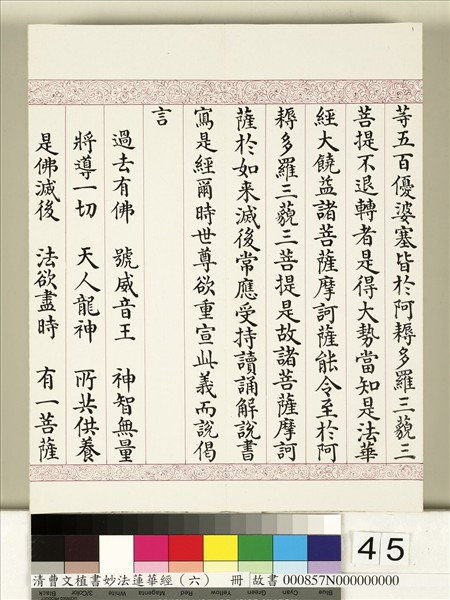 等五百優婆塞皆於阿耨多羅三藐三
菩提不退轉者是得大勢當知是法華
經大饒益諸菩薩摩訶薩能令至於阿
耨多羅三藐三菩提是故諸菩薩摩訶
薩於如来滅後常應受持讀誦解說書
寫是經爾時世尊欲重宣此義而說偈
言
過去有佛 號威音王 神智無量
將導一切 天人龍神 所共供養
是佛滅後 法欲盡時 有一菩薩
45
清曹文植書妙法蓮華經（六） 冊 故書 000857N000000000
Black 3/Color White Magenta Red Yellow Green Cyan Blue